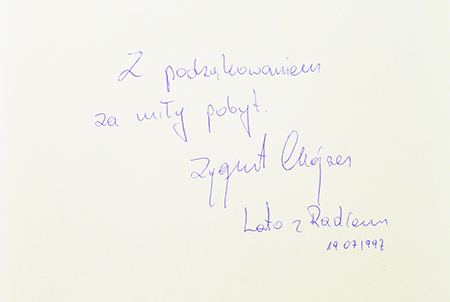 Z podziękowaniem
za miły pobyt.
Zygmunt Chajzer
Lato z Radiem
19.07.1997